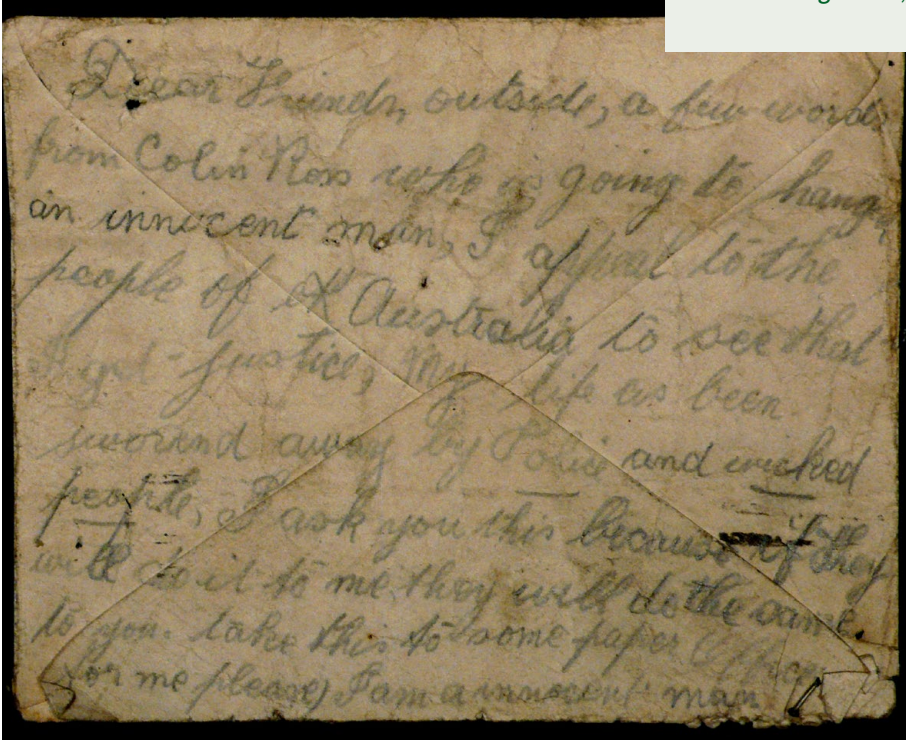 Dear Friends, outside, a few words
from Colin Ross who is going to hang
an innocent man, I appeal to the
people of Australia to see that
I get justice, My life as been
sworend away by Police and wicked
people, I ask you this because if they
will do it to me they will do the same
to you. take this to some paper Office
for me please) I am a innocent man